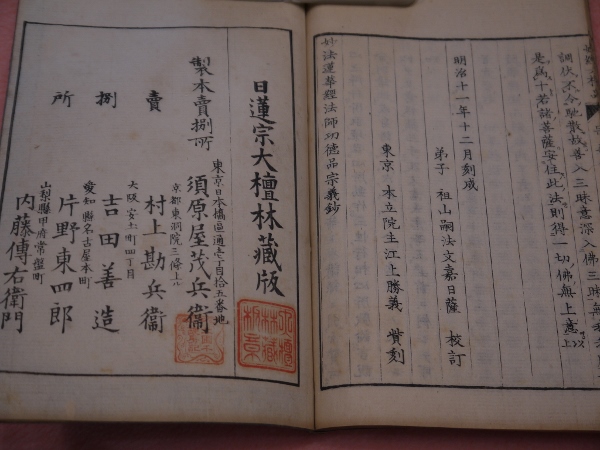 調伏、不令馳散、故善入三昧意深入佛三昧無
是爲十、若諸菩薩安住此法、則得一切佛無上意
明治十一年十二月刻成
弟子 祖山嗣法文嘉日薩 校訂
東京 本立院主江上勝義 貲刻
妙法蓮華經法師功德品宗義鈔
日蓮宗大檀林藏版
製本賣捌所
東京日本橋區通壱丁目拾五番地
須原屋茂兵衞
京都東洞院三條上ル
村上勘兵衞
大阪安土町四丁目
吉田善造
愛知縣名古屋本町
片野東四郎
山梨縣甲府常盤町
内藤傳右衞門
賣捌所